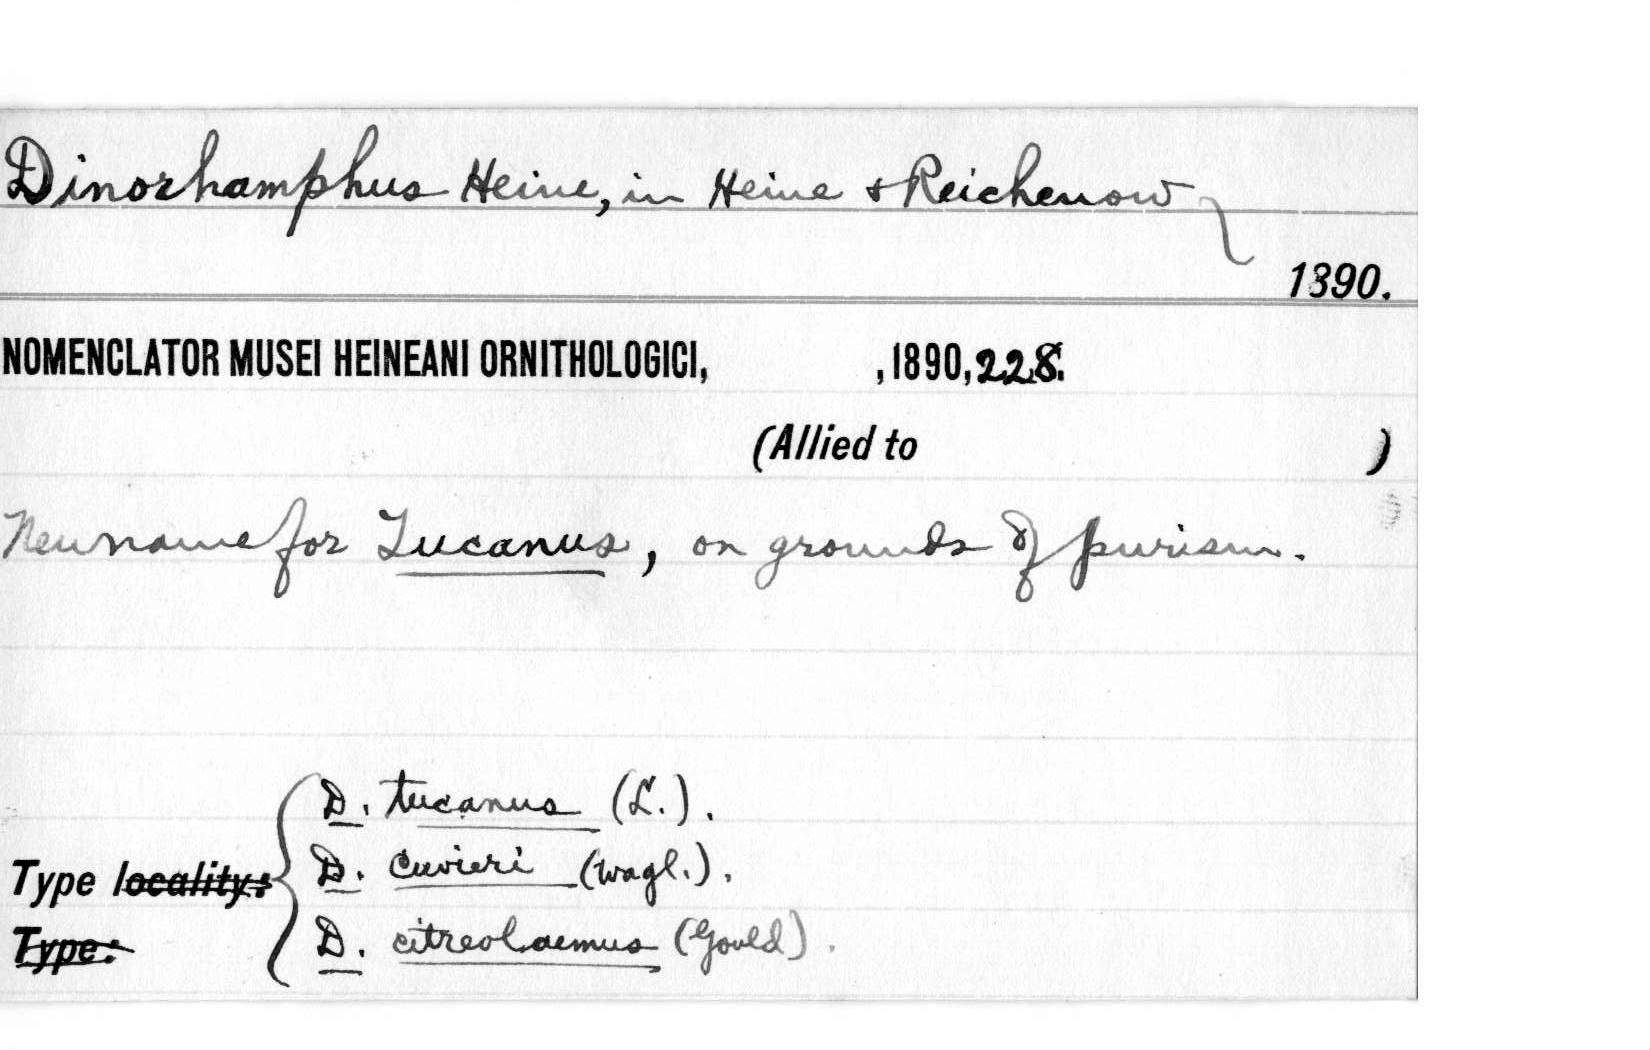 Dinorhamphus Heine, in Heine & Reichenow
1890.
NOMENCLATOR MUSEI HEINEANI ORNITHOLOGICI, , 1890, 228.
(Allied to )
New name for Tucanus, on grounds of purism.
D. tucanus (L.).
D. cuvieri (Wagl.).
Type locality:
D. citreolaemus (Gould).
Type: